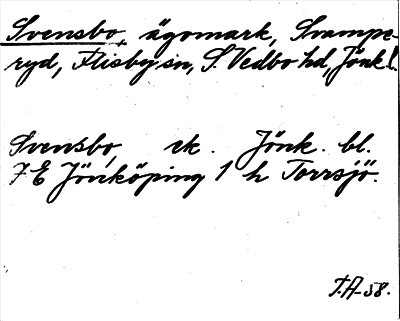 Svensbo, ägomark, Svampe-
ryd, Flisby sn, S. Vedbo hd, Jönk.l.
Svensbo, ek. Jönk. bl.
7 E Jönköping 1 h Torrsjö.
T.A-58.